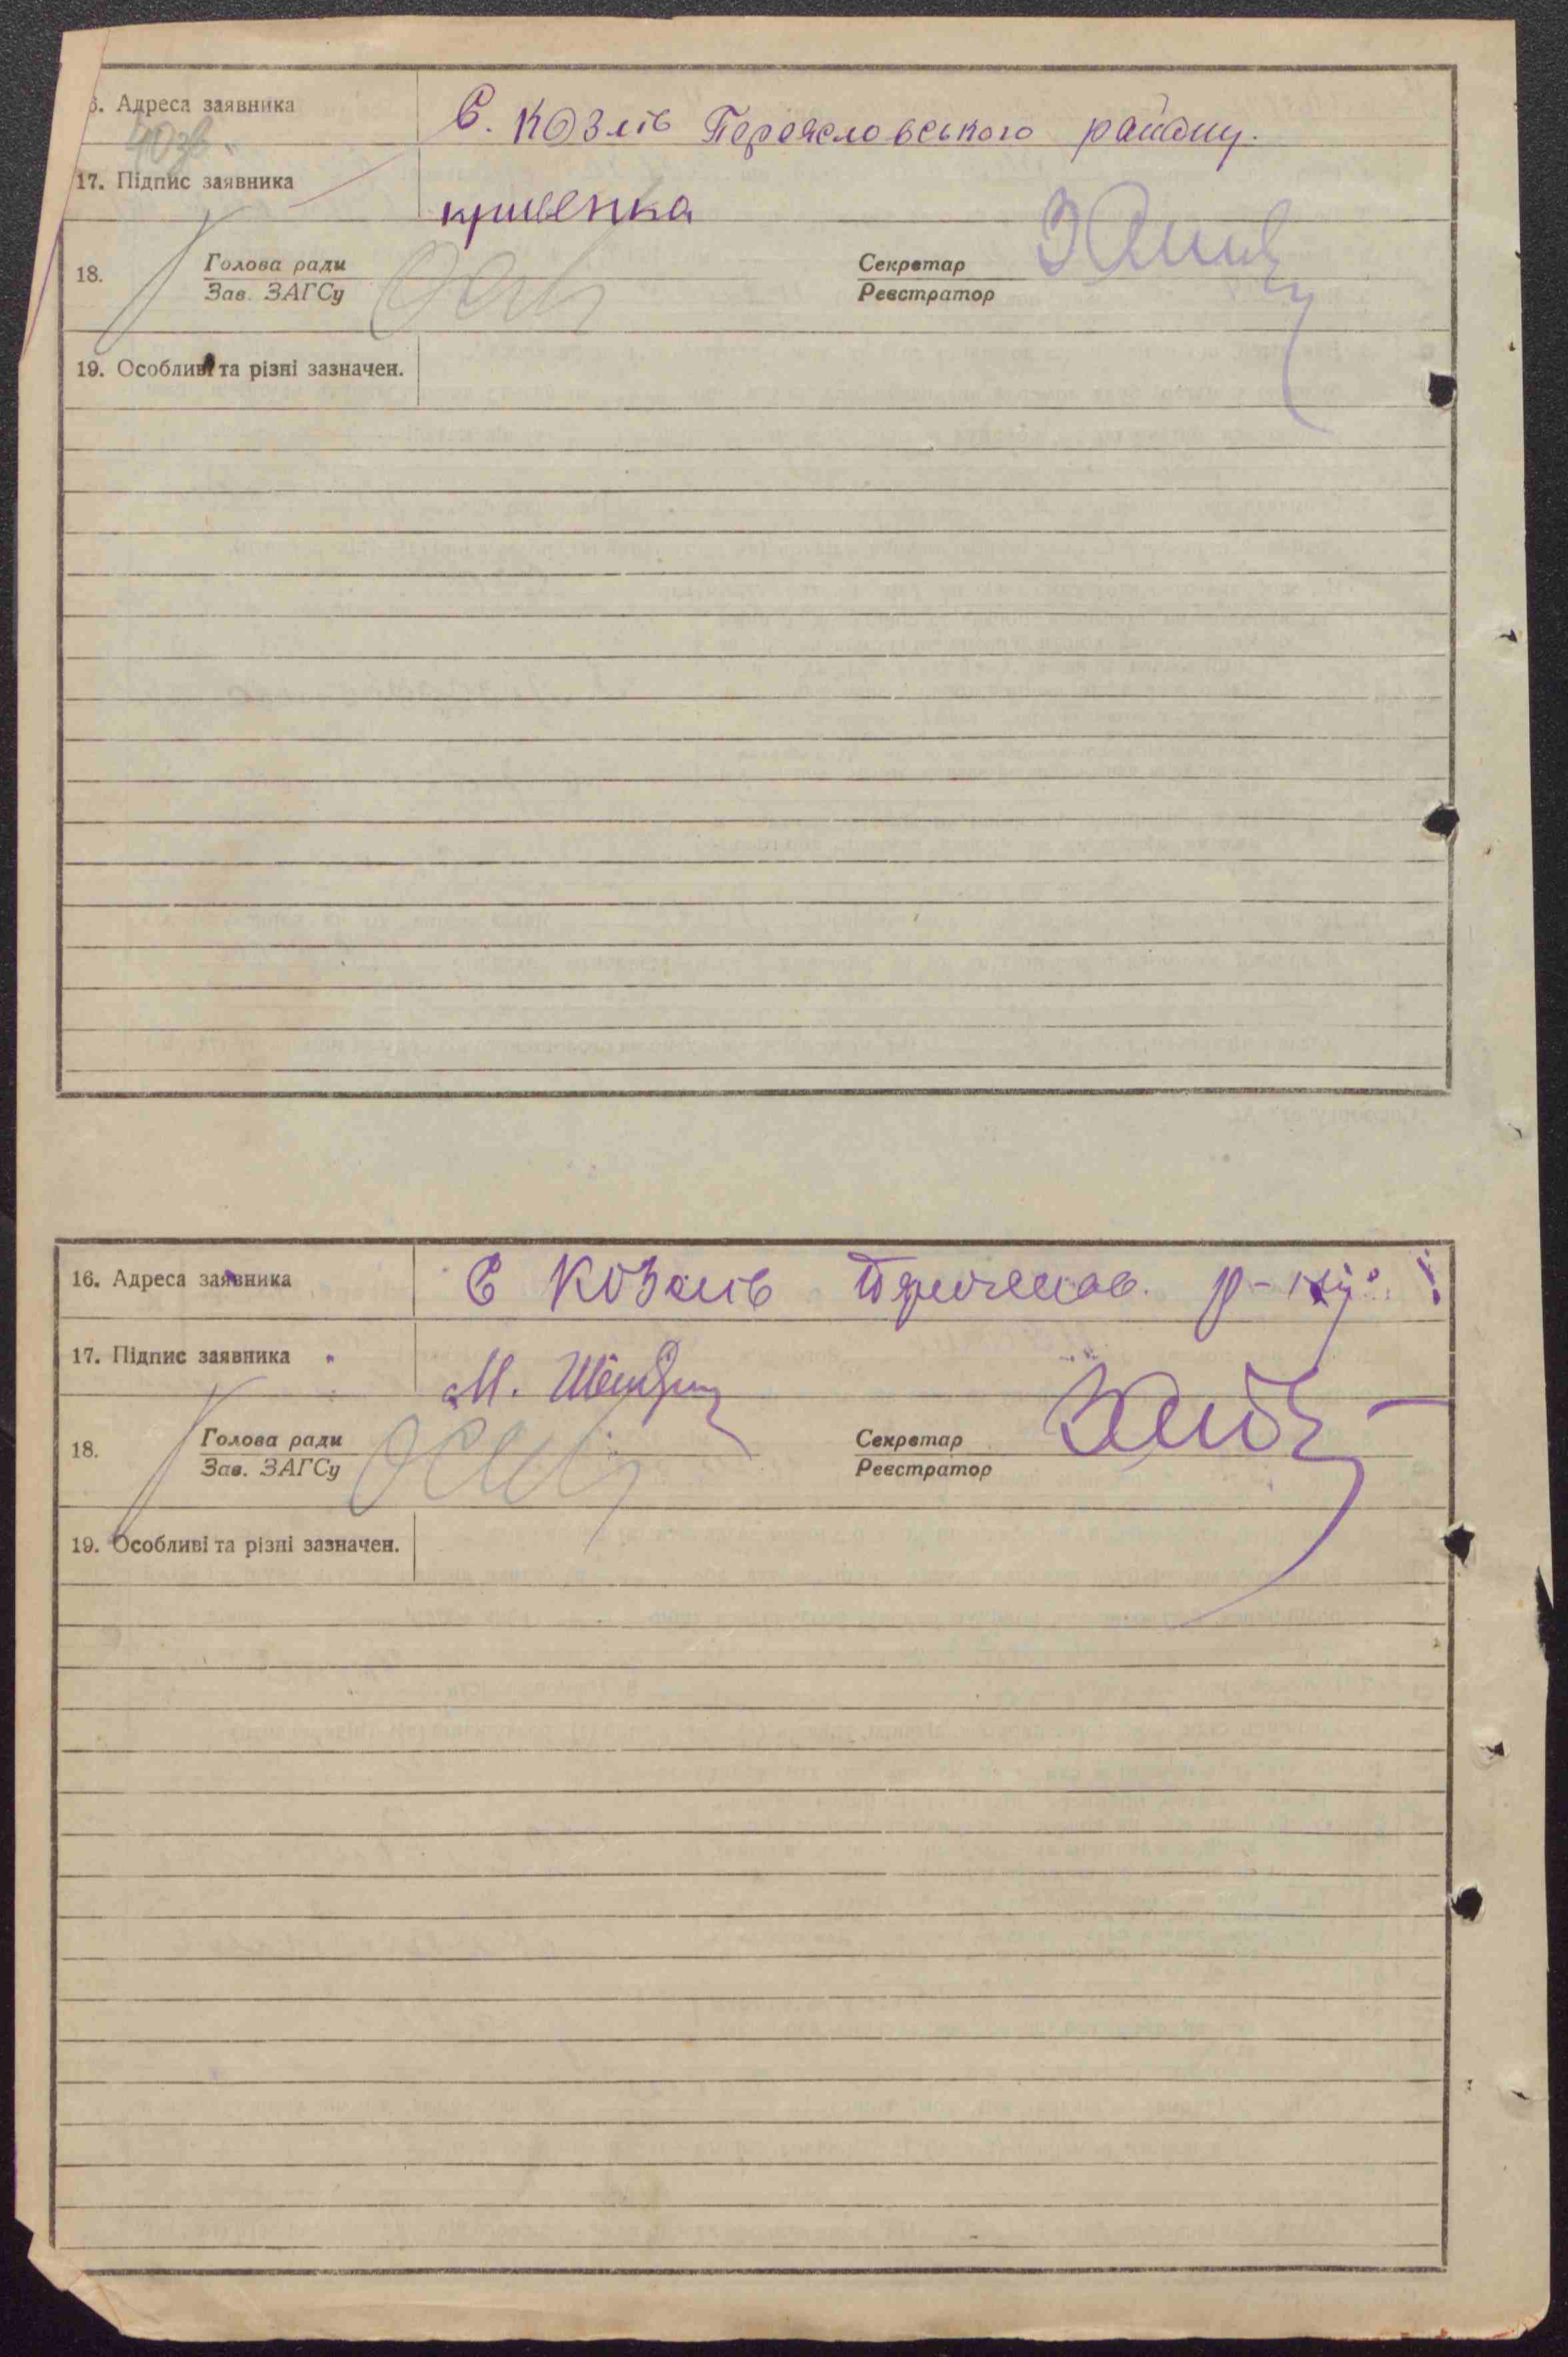 6. Адреса заявника С. Козлів Переясловського району.
17. Підпис заявника кривенка
18. Голова ради Секретар
Зав. ЗАГСу Реєстратор
19. Особливі та різні зазначен.
16. Адреса заявника С Козлів р-ну
17. Підпис заявника М.
18. Голова ради Секретар
Зав. ЗАГСу Реєстратор
19. Особливі та різні зазначен.